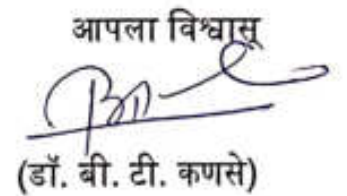 आपला विश्वासू
(डॉ. बी. टी. कणसे)